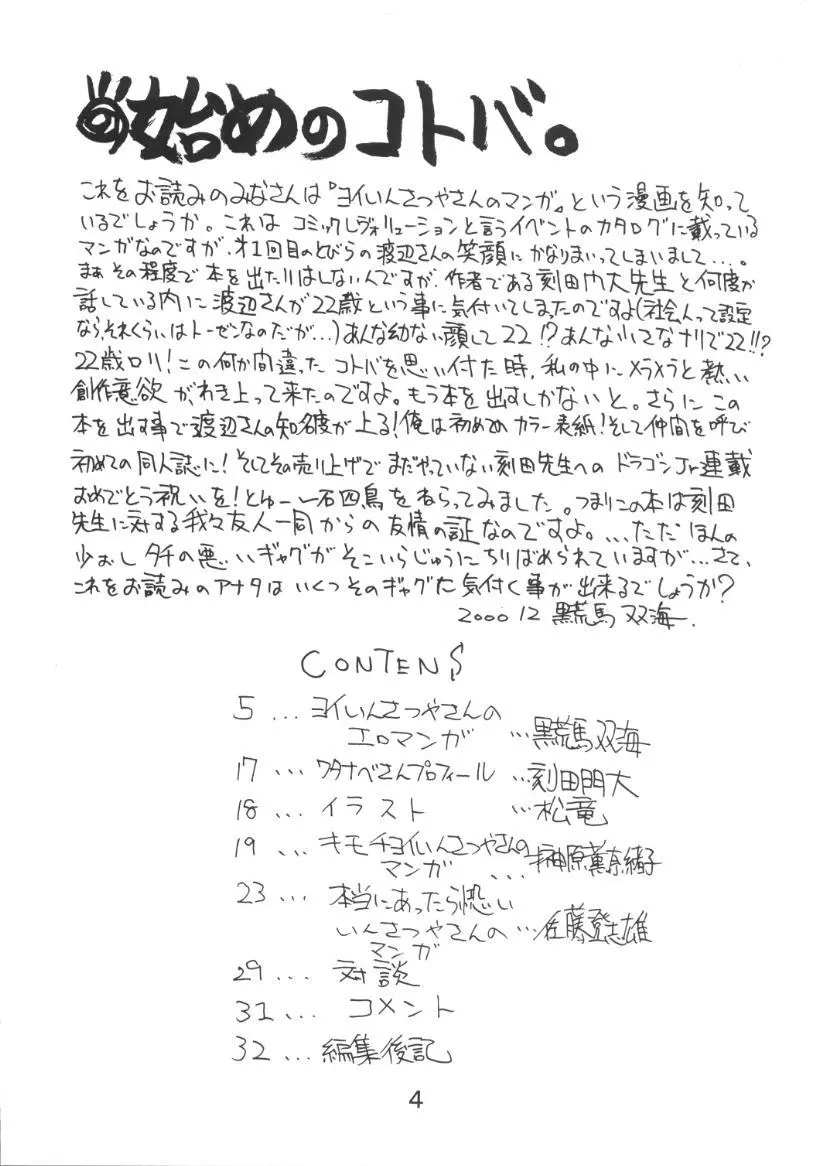 の始めのコトバ。
これをお読みのみなさんは『ヨイいんさつやさんのマンガ』という漫画を知って
いるでしょうか。これは コミックレヴォリューションと言うイベントのカタログに載っている
マンガなのですが、才1回目のとびらの渡辺さんの笑顔にかなりまいってしまいまして...。
まぁその程度で本を出たりはしないんですが、作者である刻田門大先生と何度か
話している内に渡辺さんが22歳という事に気付いてしまったのですよ(社会人って設定
なら、それくらいはトーゼンなのだが...)あんな幼ない顔して22!?あんな小さなナリで22!!?
22歳ロリ!この何か間違ったコトバを思い付た時、私の中にメラメラと熱い
創作意欲がわき上って来たのですよ。もう本を出すしかないと。さらにこの
本を出す事で渡辺さんの知名度が上る!俺は初めてのカラー表紙!そして仲間を呼び
初めての同人誌に!そしてその売り上げでまだやっていない刻田先生へのドラゴンJr連載
おめでとう祝いを!とゆー一石四鳥をねらってみました。つまりこの本は刻田
先生に対する我々友人一同からの友情の証なのですよ。...ただほんの
少おしタチの悪いギャグがそこいらじゅうにちりばめられていますが...さて、
これをお読みのアナタはいくつそのギャグに気付く事が出来るでしょうか?
2000 12 黒荒馬 双海.
CONTENS
5 ... ヨイいんさつやさんの
エロマンガ ...黒荒馬双海
17 ... ワタナベさんプロフィール ...刻田門大
18 ... イラスト ...松竜
19 ... キモチヨイいんさつやさんの
マンガ ...榊原薫奈緒子
23 ... 本当にあったら恐い
いんさつやさんの...佐藤登志雄
マンガ
29 ... 対談
31 ... コメント
32 ... 編集後記
4